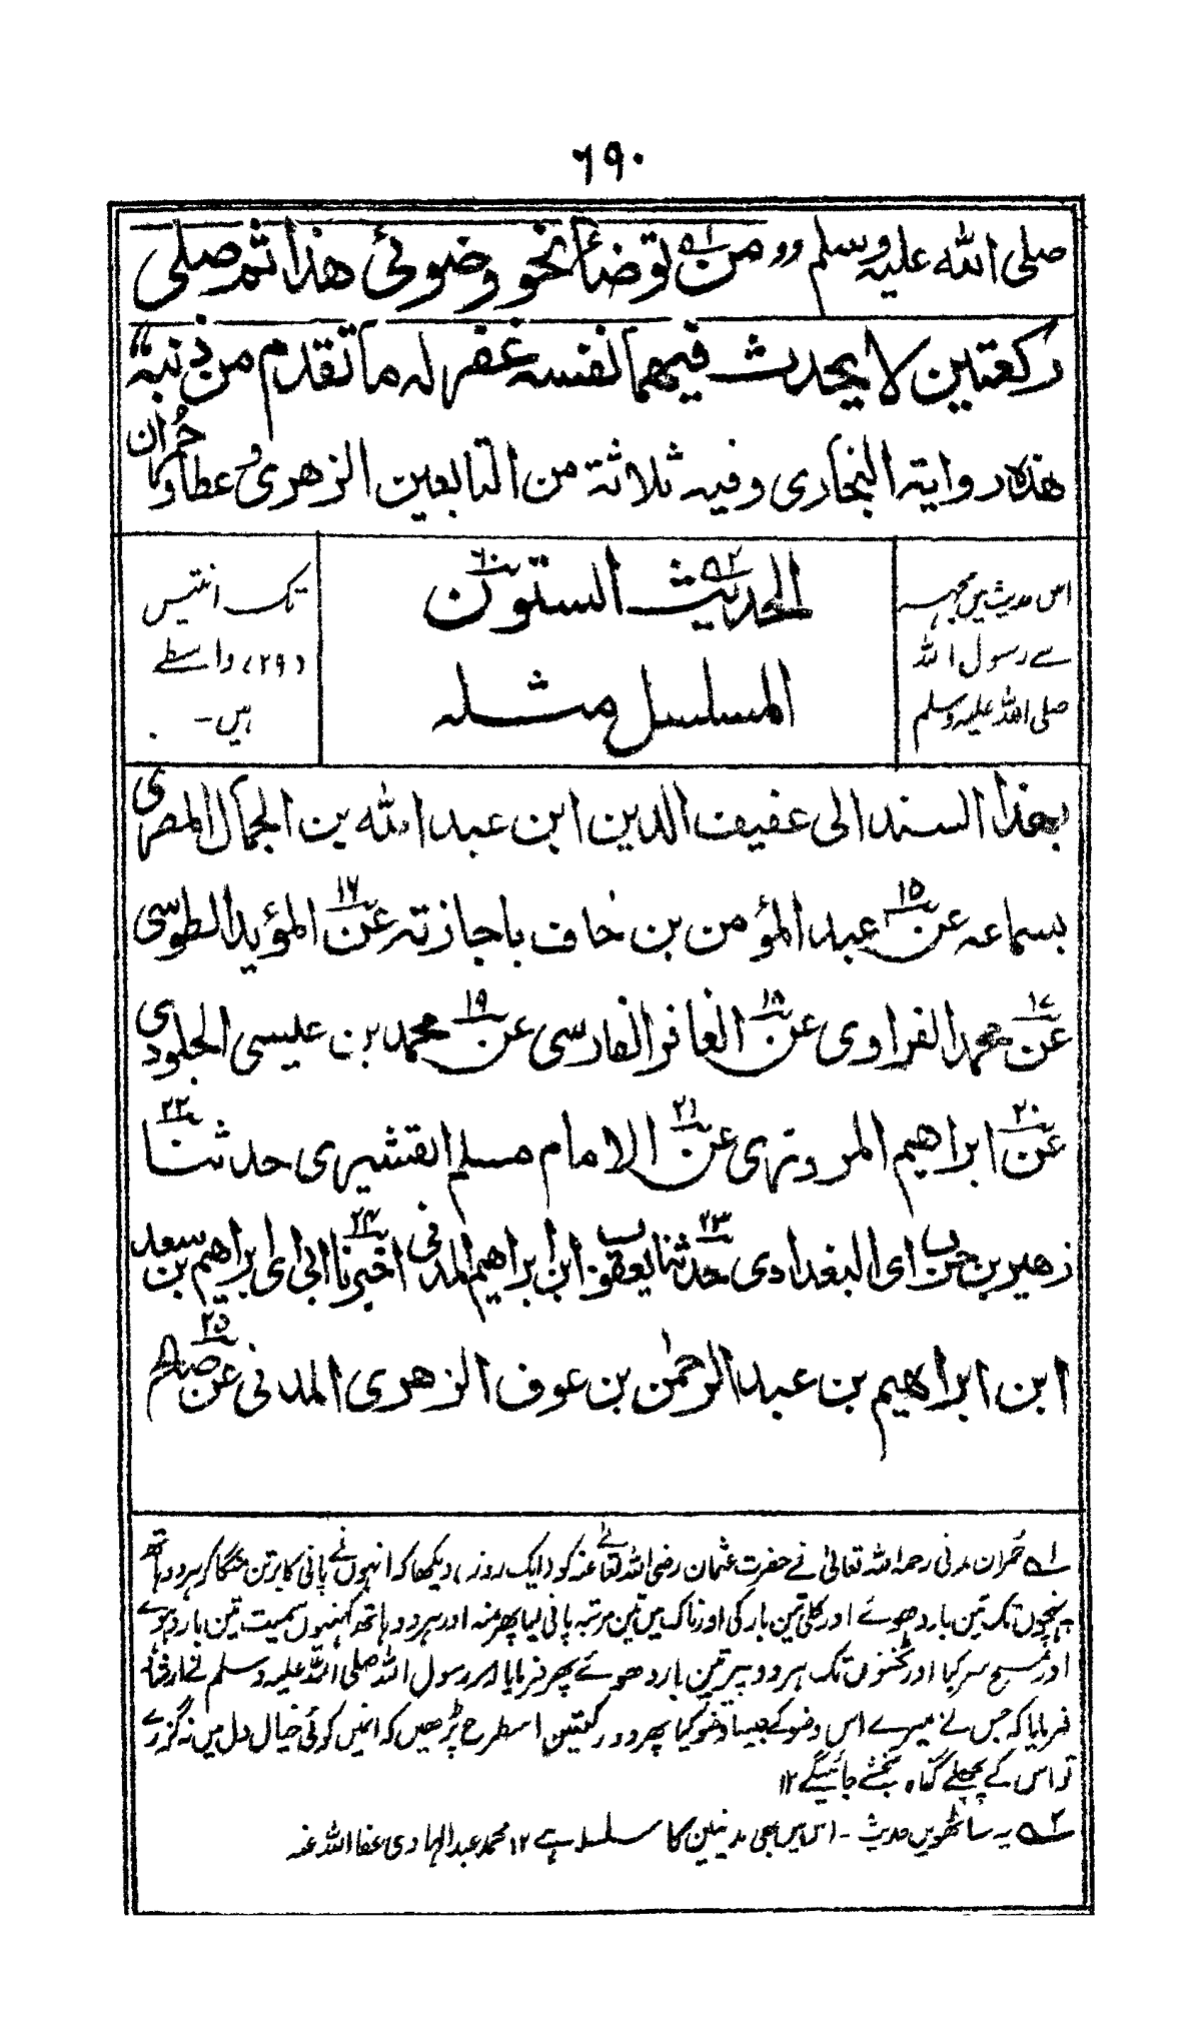 ٦٩٠
صلى الله عليه وسلم ،، من ؎١ توضأ نحو وضوئى هذا ثم صلى
ركعتين لا يحدث فيهما نفسه غفر له ما تقدم من ذنبه ،،
هذه رواية البخارى وفيه ثلاثة من التابعين الزهرى وعطاء وحُمران
اس حدیث میں مجھ
سے رسول اللہ
صلی اللہ علیہ وسلم
الحديث ؎٢ الستون ٦٠
المسلسل مثله
تک انتیس
(٢٩) واسطے
ہیں۔
بهذا السند الى عفيف الدين ابن عبد الله بن الجمال المصرى
بسماعه عن ١٥ عبد المؤمن بن خلف باجازته عن ١٦ المؤيد الطوسى
عن ١٧ محمد الفراوى عن ١٨ الغافر الفارسى عن ١٩ محمد بن عيسى الجلودى
عن ٢٠ ابراهيم المروزى عن ٢١ الامام مسلم القشيرى حدثنا ٢٢
زهير بن حرب اى البغدادى حدثنا ٢٣ يعقوب ابن ابراهيم المدنى اخبرنا ٢٤ ابى اى ابراهيم بن سعد
ابن ابراهيم بن عبد الرحمٰن بن عوف الزهرى المدنى عن ٢٥ صالح
؎١ حُمران مدنی رحمہ اللہ تعالیٰ نے حضرت عثمان رضی اللہ تعالےٰ عنہ کو (ایک روز) دیکھا کہ انہوں نے پانی کا برتن منگا کر ہر دو ہاتھ
پہنچوں تک تین بار دھوئے اور کلی تین بار کی اور ناک میں تین مرتبہ پانی لیا پھر منہ اور ہر دو ہاتھ کہنیوں سمیت تین بار دھوئے
اور مسح سر کیا اور ٹخنوں تک ہر دو پیر تین بار دھوئے پھر فرمایا اور رسول اللہ صلی اللہ علیہ وسلم نے ارشاد
فرمایا کہ جس نے میرے اس وضو کے جیسا وضو کیا پھر دو رکعتیں اسطرح پڑھیں کہ انمیں کوئی خیال دل میں نہ گزرے
تو اس کے پچھلے گناہ بخشے جائینگے ١٢
؎٢ یہ ساٹھویں حدیث ۔ اس میں بھی مدنیین کا سلسلہ ہے ١٢ محمد عبد الہادی عفا اللہ عنہ